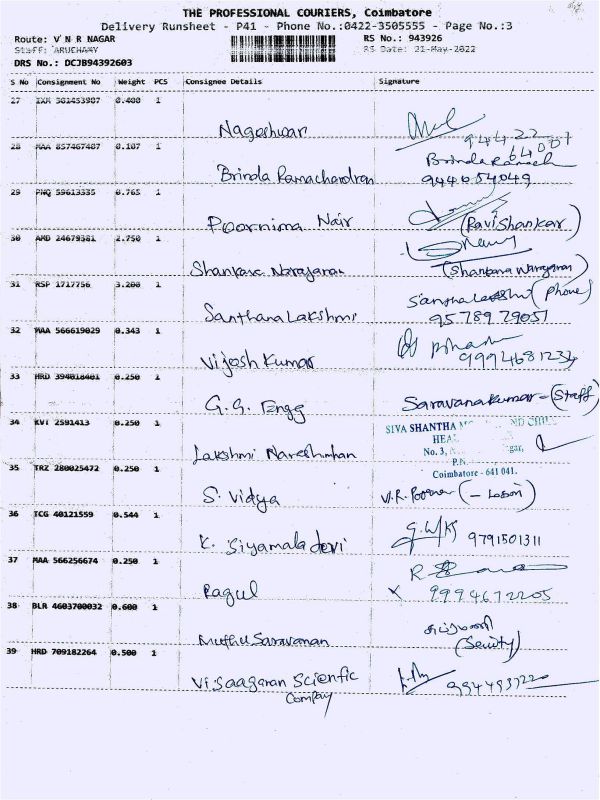 THE PROFESSIONAL COURIERS, Coimbatore
Delivery Runsheet - P41 - Phone No.:0422-3505555 - Page No.:3
Route: V N R NAGAR RS No.: 943926
Staff: ARUCHAMY RS Date: 21-May-2022
DRS No.: DCJB94392603
S No Consignment No Weight PCS Consignee Details Signature
27 IXM 0.400 1
Nageshwari
94422
64007
28 MAA 857467487 0.107 1
Brinda Ramachandran
944
29 PNQ 59613335 0.765 1
Poornima Nair
(Ravi Shankar)
30 AMD 24679381 2.750 1
Shankara Narayanan
31 RSP 1717756 3.200 1
Santhana Lakshmi
(Phone)
95789 79051
32 MAA 566619029 0.343 1
Vijesh Kumar
9994681234
33 HRD 394818401 0.250 1
G.G. Engg
Saravanakumar - (Staff)
34 KVI 2591413 0.250 1
Lakshmi
SIVA SHANTHA
HEA
No. 3,
P.N.
Coimbatore - 641 041.
35 TRZ 280025472 0.250 1
S. Vidya
36 TCG 40121559 0.544 1
K. Siyamala devi
9791501311
37 MAA 566256674 0.250 1
Ragul
X 9994672205
38 BLR 4603700032 0.600 1
Muthu Saravanan
39 HRD 709182264 0.500 1
Visaagaran Scienfic
Company